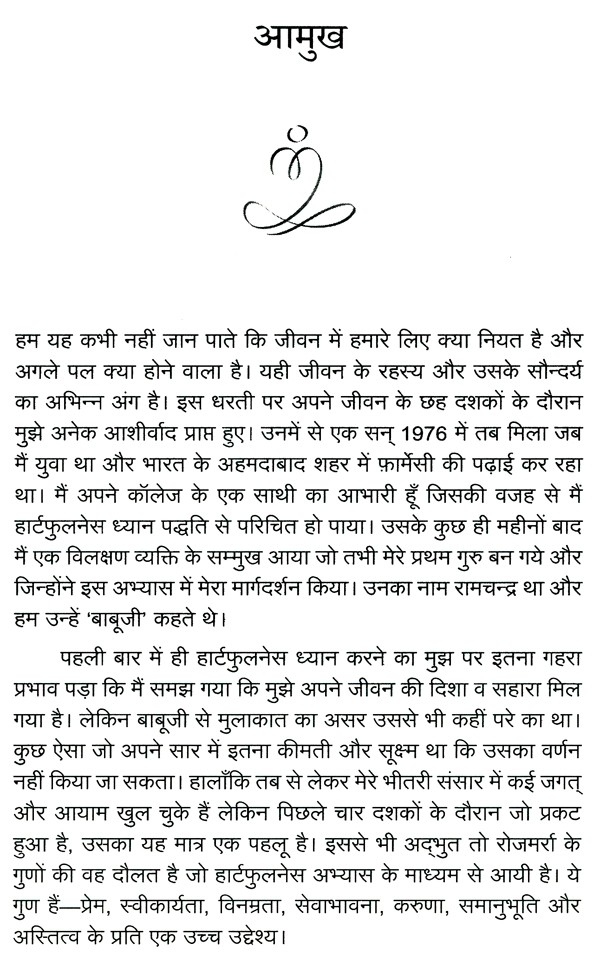 आमुख
हम यह कभी नहीं जान पाते कि जीवन में हमारे लिए क्या नियत है और
अगले पल क्या होने वाला है। यही जीवन के रहस्य और उसके सौन्दर्य
का अभिन्न अंग है। इस धरती पर अपने जीवन के छह दशकों के दौरान
मुझे अनेक आशीर्वाद प्राप्त हुए। उनमें से एक सन् 1976 में तब मिला जब
मैं युवा था और भारत के अहमदाबाद शहर में फ़ार्मेसी की पढ़ाई कर रहा
था। मैं अपने कॉलेज के एक साथी का आभारी हूँ जिसकी वजह से मैं
हार्टफुलनेस ध्यान पद्धति से परिचित हो पाया। उसके कुछ ही महीनों बाद
मैं एक विलक्षण व्यक्ति के सम्मुख आया जो तभी मेरे प्रथम गुरु बन गये और
जिन्होंने इस अभ्यास में मेरा मार्गदर्शन किया। उनका नाम रामचन्द्र था और
हम उन्हें ‘बाबूजी’ कहते थे।
पहली बार में ही हार्टफुलनेस ध्यान करने का मुझ पर इतना गहरा
प्रभाव पड़ा कि मैं समझ गया कि मुझे अपने जीवन की दिशा व सहारा मिल
गया है। लेकिन बाबूजी से मुलाकात का असर उससे भी कहीं परे का था।
कुछ ऐसा जो अपने सार में इतना कीमती और सूक्ष्म था कि उसका वर्णन
नहीं किया जा सकता। हालाँकि तब से लेकर मेरे भीतरी संसार में कई जगत्
और आयाम खुल चुके हैं लेकिन पिछले चार दशकों के दौरान जो प्रकट
हुआ है, उसका यह मात्र एक पहलू है। इससे भी अद्‌भुत तो रोजमर्रा के
गुणों की वह दौलत है जो हार्टफुलनेस अभ्यास के माध्यम से आयी है। ये
गुण हैं—प्रेम, स्वीकार्यता, विनम्रता, सेवाभावना, करुणा, समानुभूति और
अस्तित्व के प्रति एक उच्च उद्देश्य।